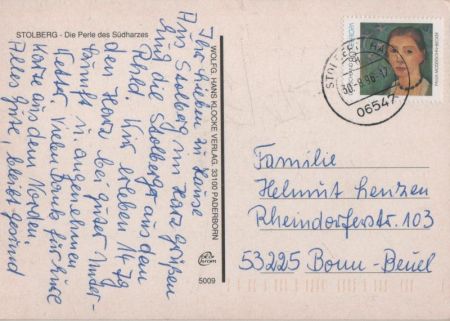 STOLBERG - Die Perle des Südharzes
Ihr Lieben zu Hause
Aus Stolberg im Harz grüßen
die Stolberger aus dem
Wir erleben 14 Tg
den Harz bei guter Unter-
kunft u. angenehmen
Wetter. Vielen Dank für Eure
Karte aus dem Norden.
Alles Gute, bleibt gesund
WOLFG. HANS KLOCKE VERLAG, 33100 PADERBORN
5009
STOLBERG (HARZ)
30.-8.96-17
06547
PAULA MODERSOHN-BECKER
Familie
Helmut Lenzen
Rheindorferstr. 103
53225 Bonn-Beuel